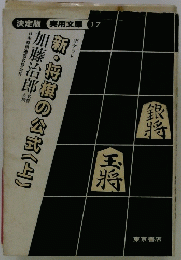 決定版 実用文庫 17
ポケット
新・将棋の公式〈上〉
加藤治郎
銀将
玉将
東京書店